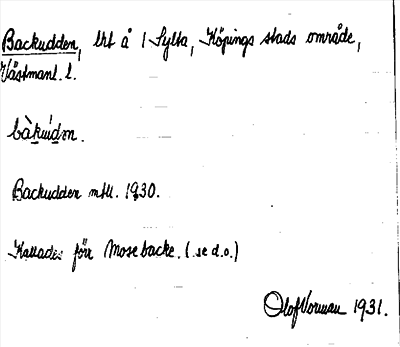 Backudden, lht å 1 Sylta, Köpings stads område,
Västmanl. l.
bàkùdn.
Backudden mtll. 1930.
Kallades förr Mosebacke. (se d.o.)
Olof Norman 1931.